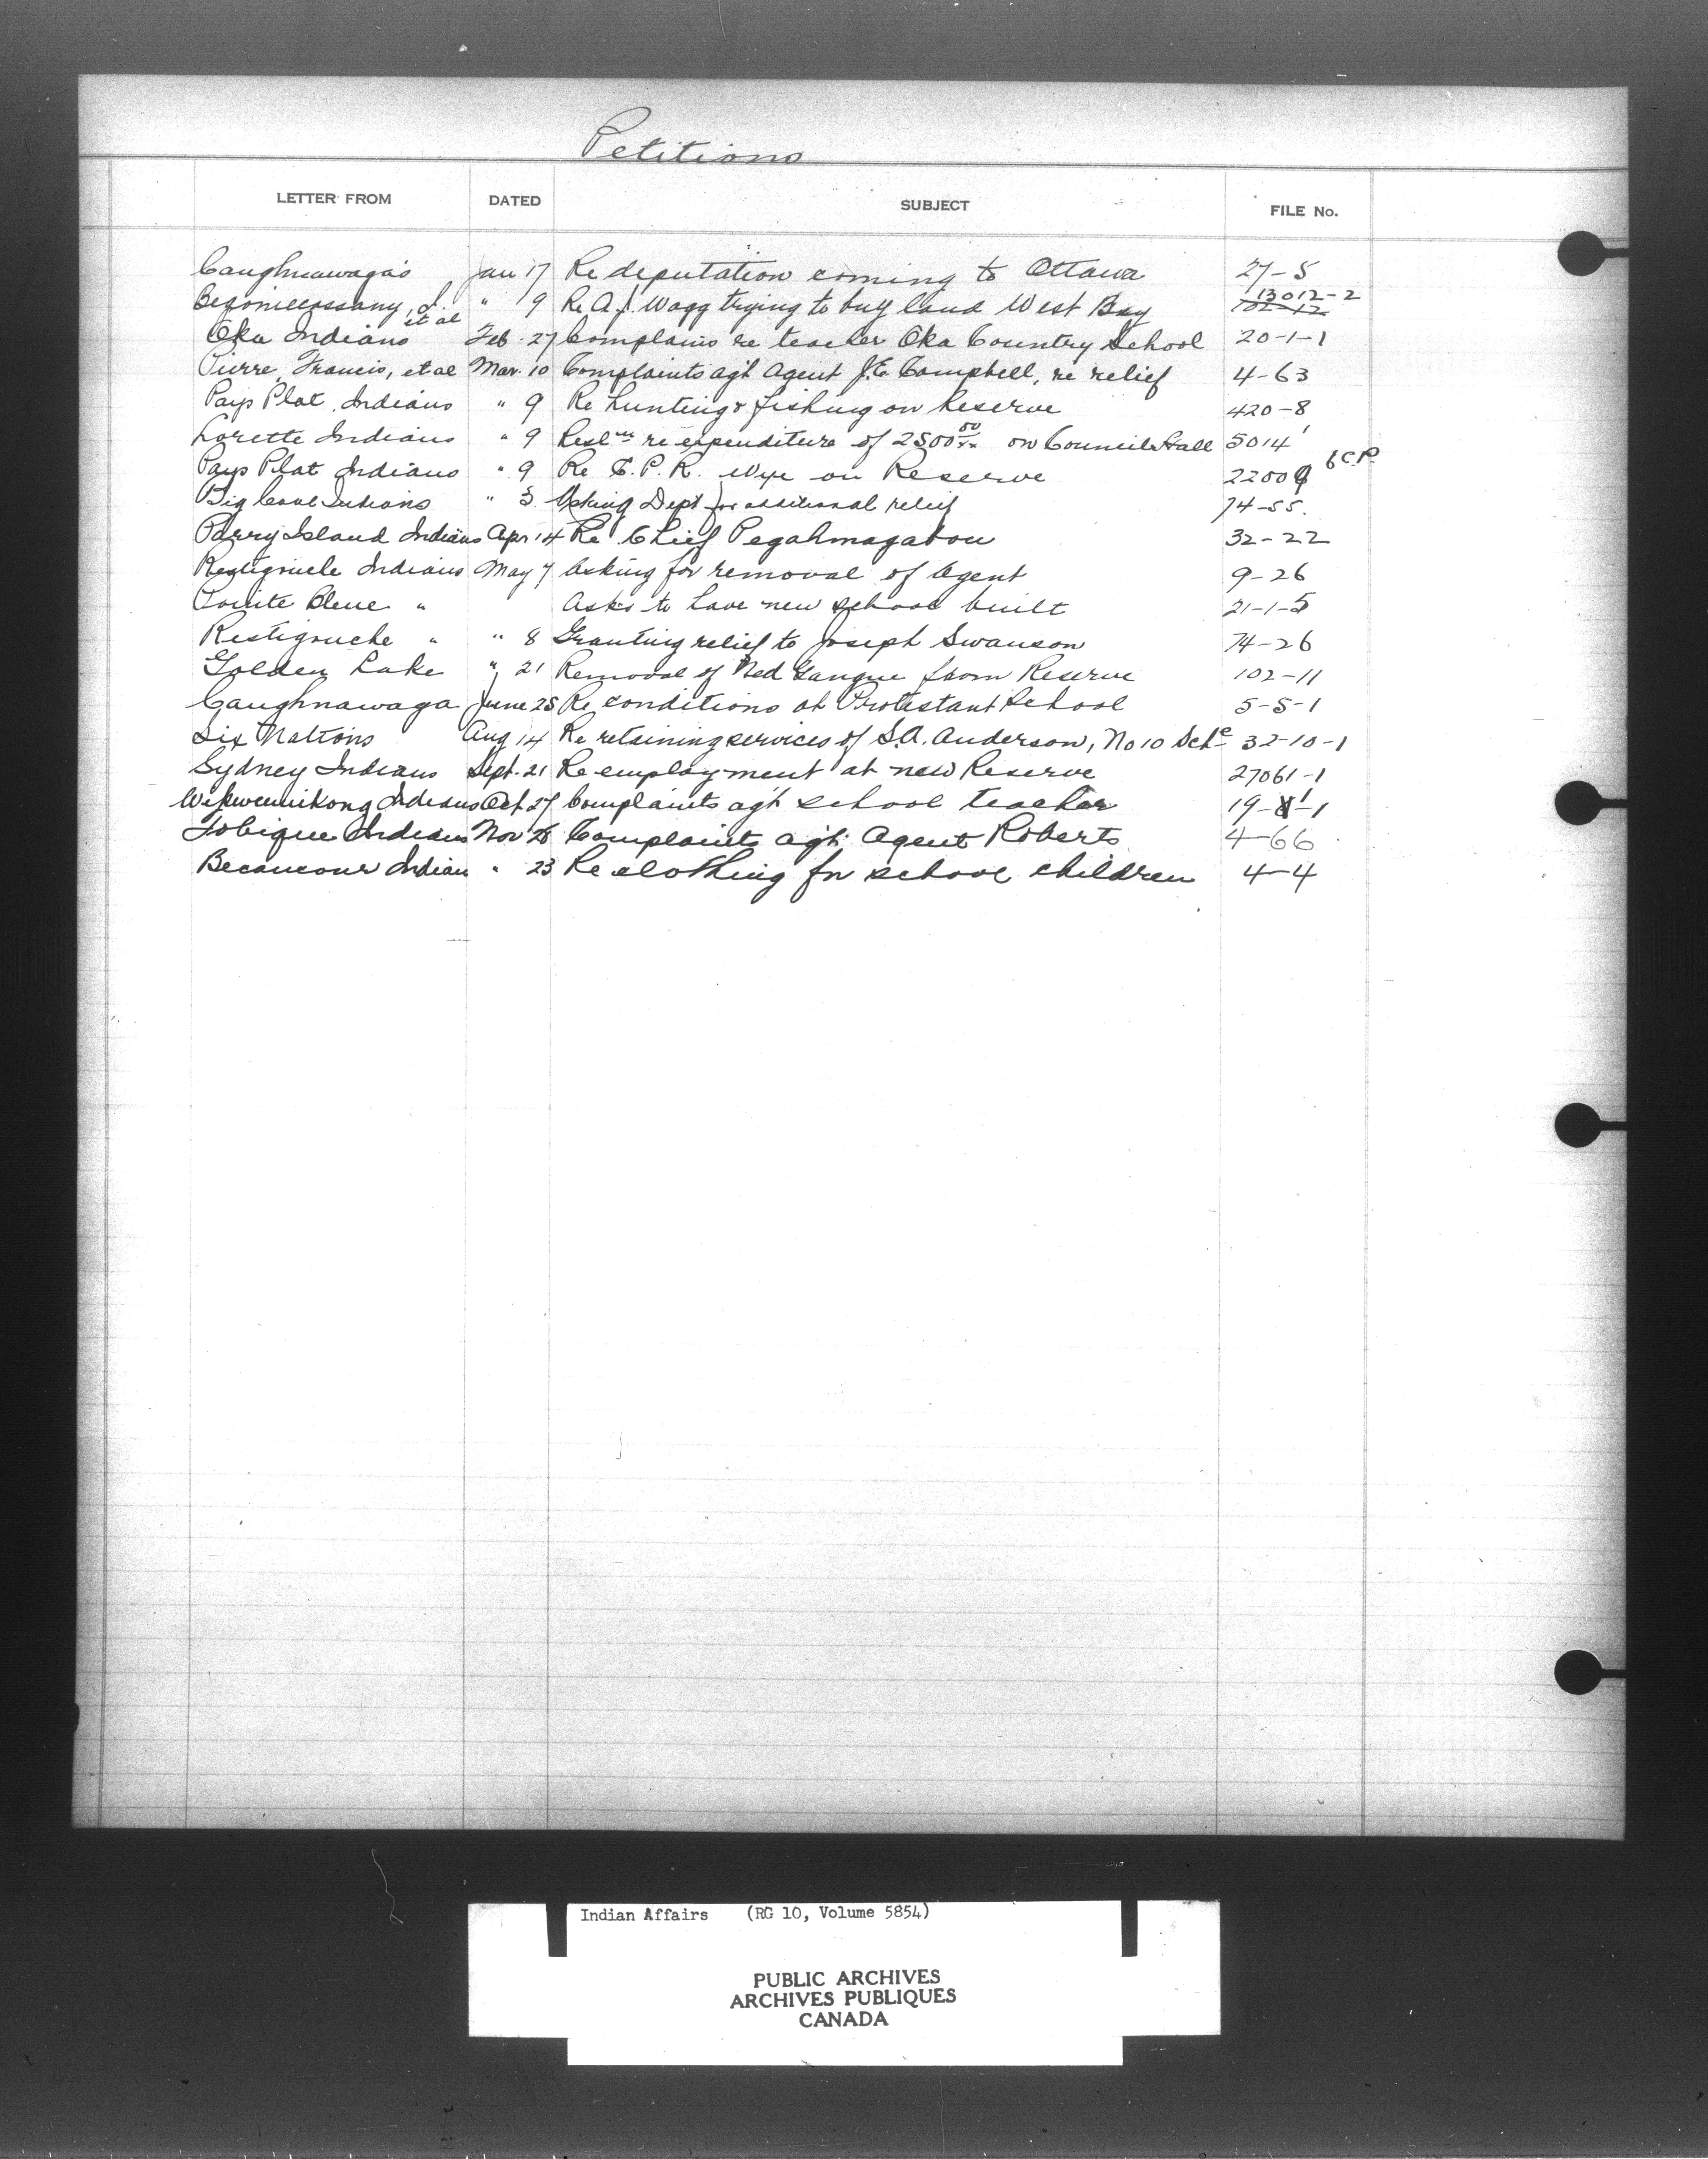 Petitions
LETTER FROM DATED SUBJECT FILE No.
Caughnawaga's Jan 17 Re deputation coming to Ottawa 27-5
et al " 9 Re A.J. Wagg trying to buy land West Bay 13012-2 102-12
Oka Indians Feb. 27 Complains re teacher Oka Country School 20-1-1
Pierre, Francis, et al Mar. 10 Complaints agt Agent J.E. Campbell, re relief 4-63
Pays Plat Indians " 9 Re hunting & fishing on Reserve 420-8
Lorette Indians " 9 Resl're expenditure of 2500 00/xx on Council Hall 5014
Pays Plat Indians " 9 Re C.P.R. Wye on Reserve 22009 6 C.P.
Big Cove Indians " 3 Asking Dept for additional relief 74-55.
Parry Island Indians Apr 14 Re Chief Pegahmagabow 32-22
Restigouche Indians May 7 Asking for removal of Agent 9-26
Pointe Bleue " Asks to have new school built 21-1-5
Restigouche " " 8 Granting relief to Joseph Swanson 74-26
Golden Lake " 21 Removal of Ned from Reserve 102-11
Caughnawaga June 25 Re conditions at Protestant School 5-5-1
Six Nations Aug 14 Re retaining services of S.A. Anderson, No 10 Sch 32-10-1
Sydney Indians Sept. 21 Re employment at new Reserve 27061-1
Wikwemikong Indians Oct 27 Complaints agt school teacher 19-1-1
Tobique Indians Nov Complaints agt. Agent Roberts 4-66
Becancour Indian " 23 Re clothing for school children 4-4
Indian Affairs (RG 10, Volume 5854)
PUBLIC ARCHIVES
ARCHIVES PUBLIQUES
CANADA